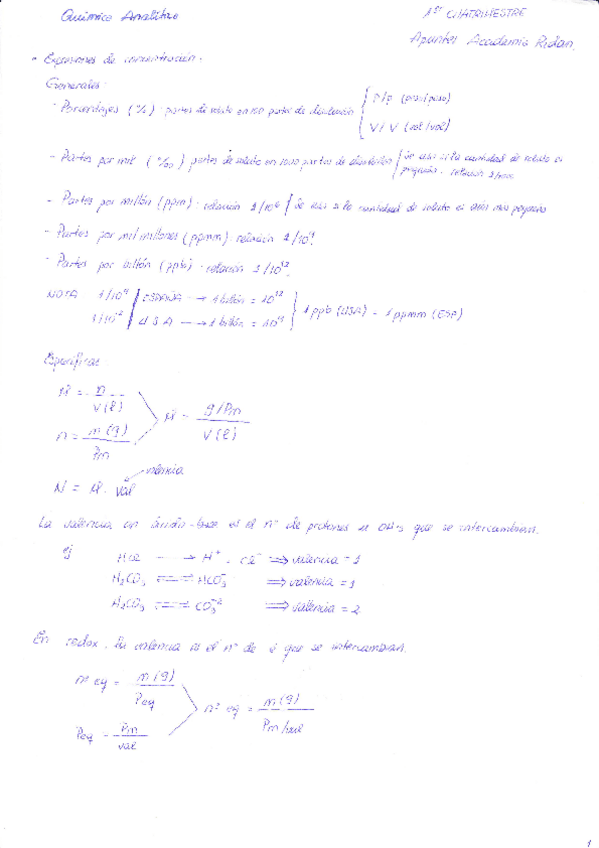 Química Analítica
1er CUATRIMESTRE
Apuntes Academia
- Expresiones de concentración.
Generales.
- Porcentajes (%) partes de soluto en 100 partes de disolución { P/P (peso/peso)
V/V (vol/vol)
- Partes por mil (‰) partes de soluto en 1000 partes de disolución { Se usa si la cantidad de soluto es
pequeña. relación 1/1000
- Partes por millón (ppm). relación 1/10⁶ { Se usa si la cantidad de soluto es aún más pequeña
- Partes por mil millones (ppmm). relación 1/10⁹.
- Partes por billón (ppb). relación 1/10¹².
NOTA 1/10⁹ { ESPAÑA → 1 billón = 10¹²
1/10¹² U.S.A → 1 billón = 10⁹ } 1 ppb (USA) = 1 ppmm (ESP)
Específicas
M = n / V(l)
n = m(g) / Pm
M = g/Pm / V(l)
N = M · val
valencia
La valencia en ácido-base es el nº de protones u OH⁻s que se intercambian.
ej
HCl → H⁺ + Cl⁻ ⇒ valencia = 1
H₂CO₃ ⇌ HCO₃⁻ ⇒ valencia = 1
H₂CO₃ ⇌ CO₃⁻² ⇒ valencia = 2
En redox, la valencia es el nº de é que se intercambian.
nº eq = m(g) / Peq
Peq = Pm / val
nº eq = m(g) / Pm/val
1